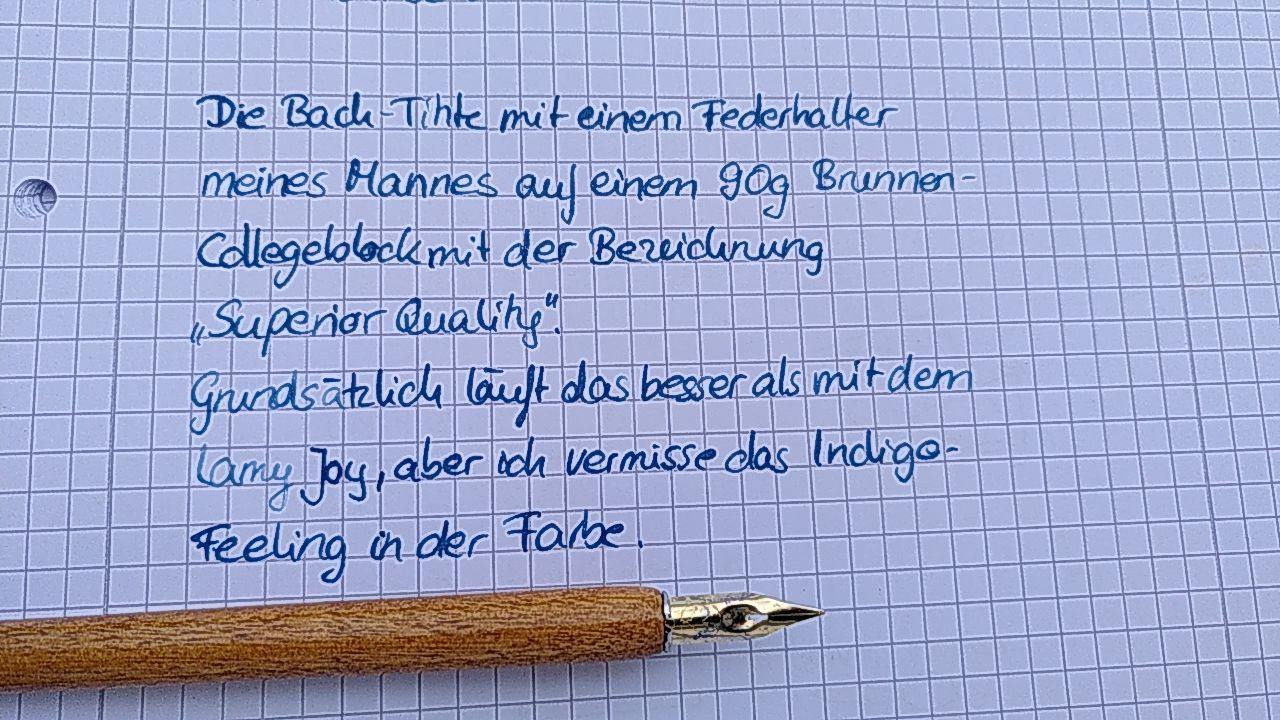 Die Bach-Tinte mit einem Federhalter
meines Mannes auf einem 90g Brunnen-
Collegeblock mit der Bezeichnung
„Superior Quality“.
Grundsätzlich läuft das besser als mit dem
Lamy Joy, aber ich vermisse das Indigo-
Feeling in der Farbe.